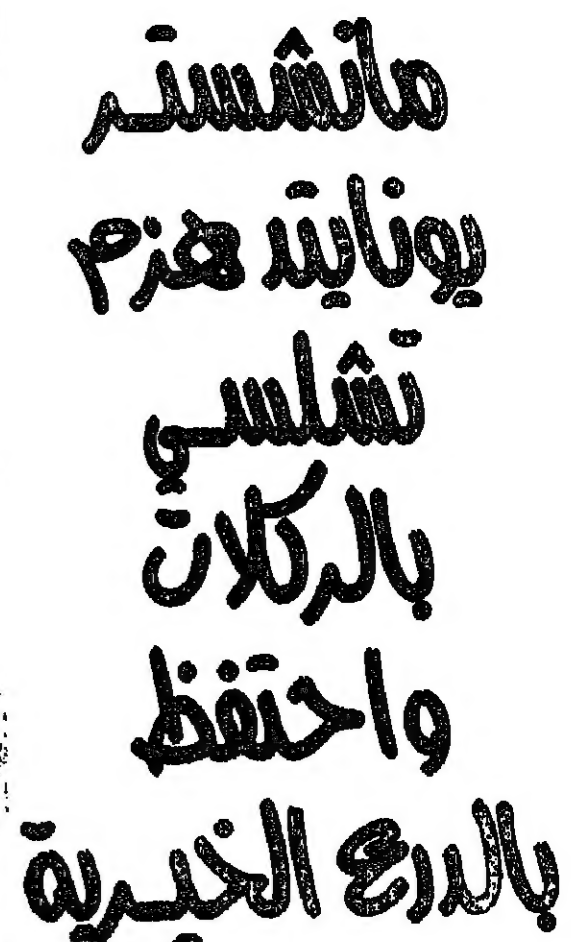 مانشستر
يونايتد هزم
تشلسي
بالركلات
واحتفظ
بالدرع الخيرية